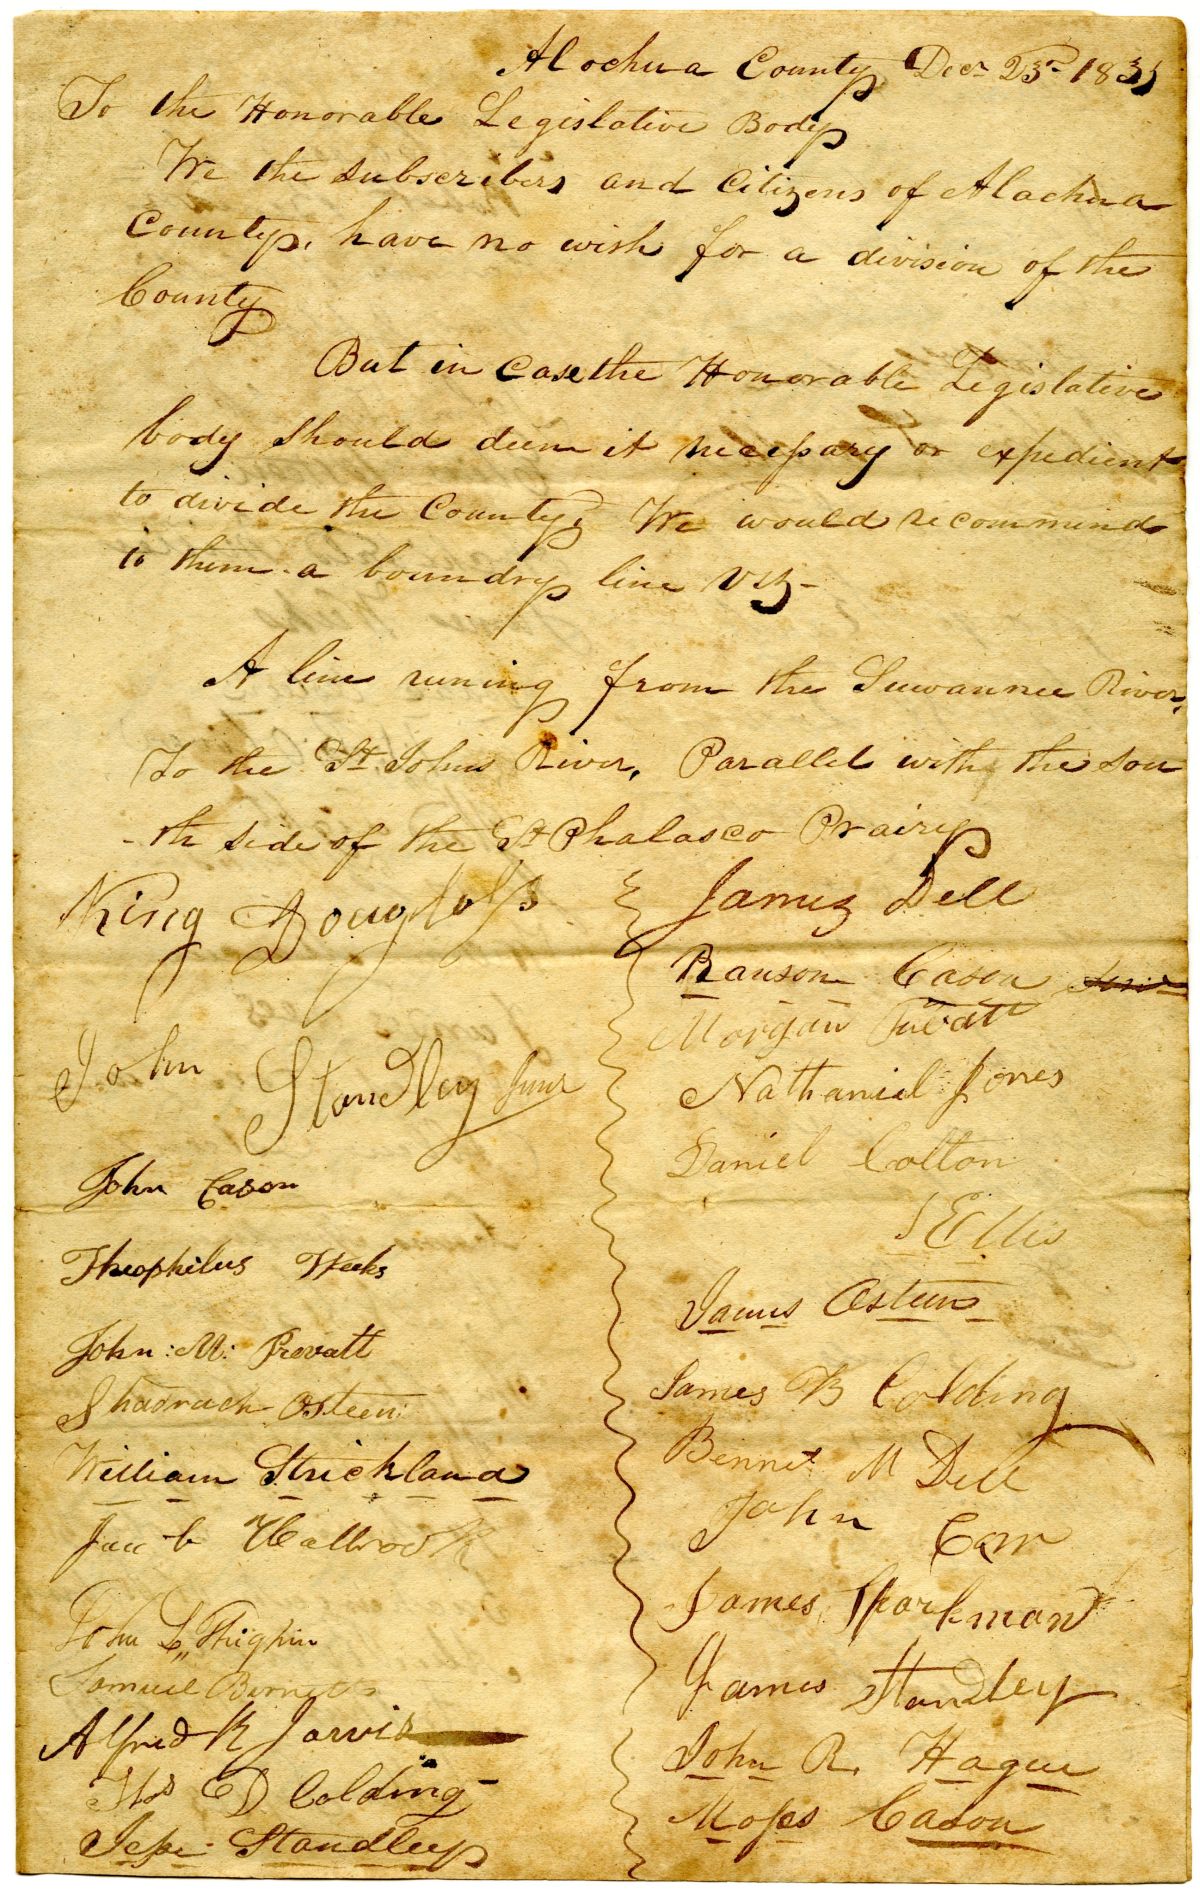 Alochua County Decr 23rd 1835
To the Honorable Legislative Body
We the subscribers and Citizens of Alachua
County, have no wish for a division of the
County
But in Case the Honorable Legislative
body should deem it necessary or expedient
to divide the County, We would recommend
to them a boundry line viz-
A line runing from the Suwannee River,
To the St Johns River, Parallel with the sou
-th side of the St Phalasco Prairy
King Douglass
John Standley Junr
John Cason
Theophilus Weeks
John : M : Prevatt
Shadrach Osteen
William Strickland
Jacob Hallbrook
John L, Thigpin
Samuel Burnett
Alfred K Jarvis
Thos D Colding
Jesse Standley
James Dell
Ranson Cason
Morgan
Nathaniel Jones
Daniel Colton
Ellis
James Osteen
James B Colding
Bennet M Dell
John Carr
James Sparkman
James Standley
John R. Hague
Moses Cason